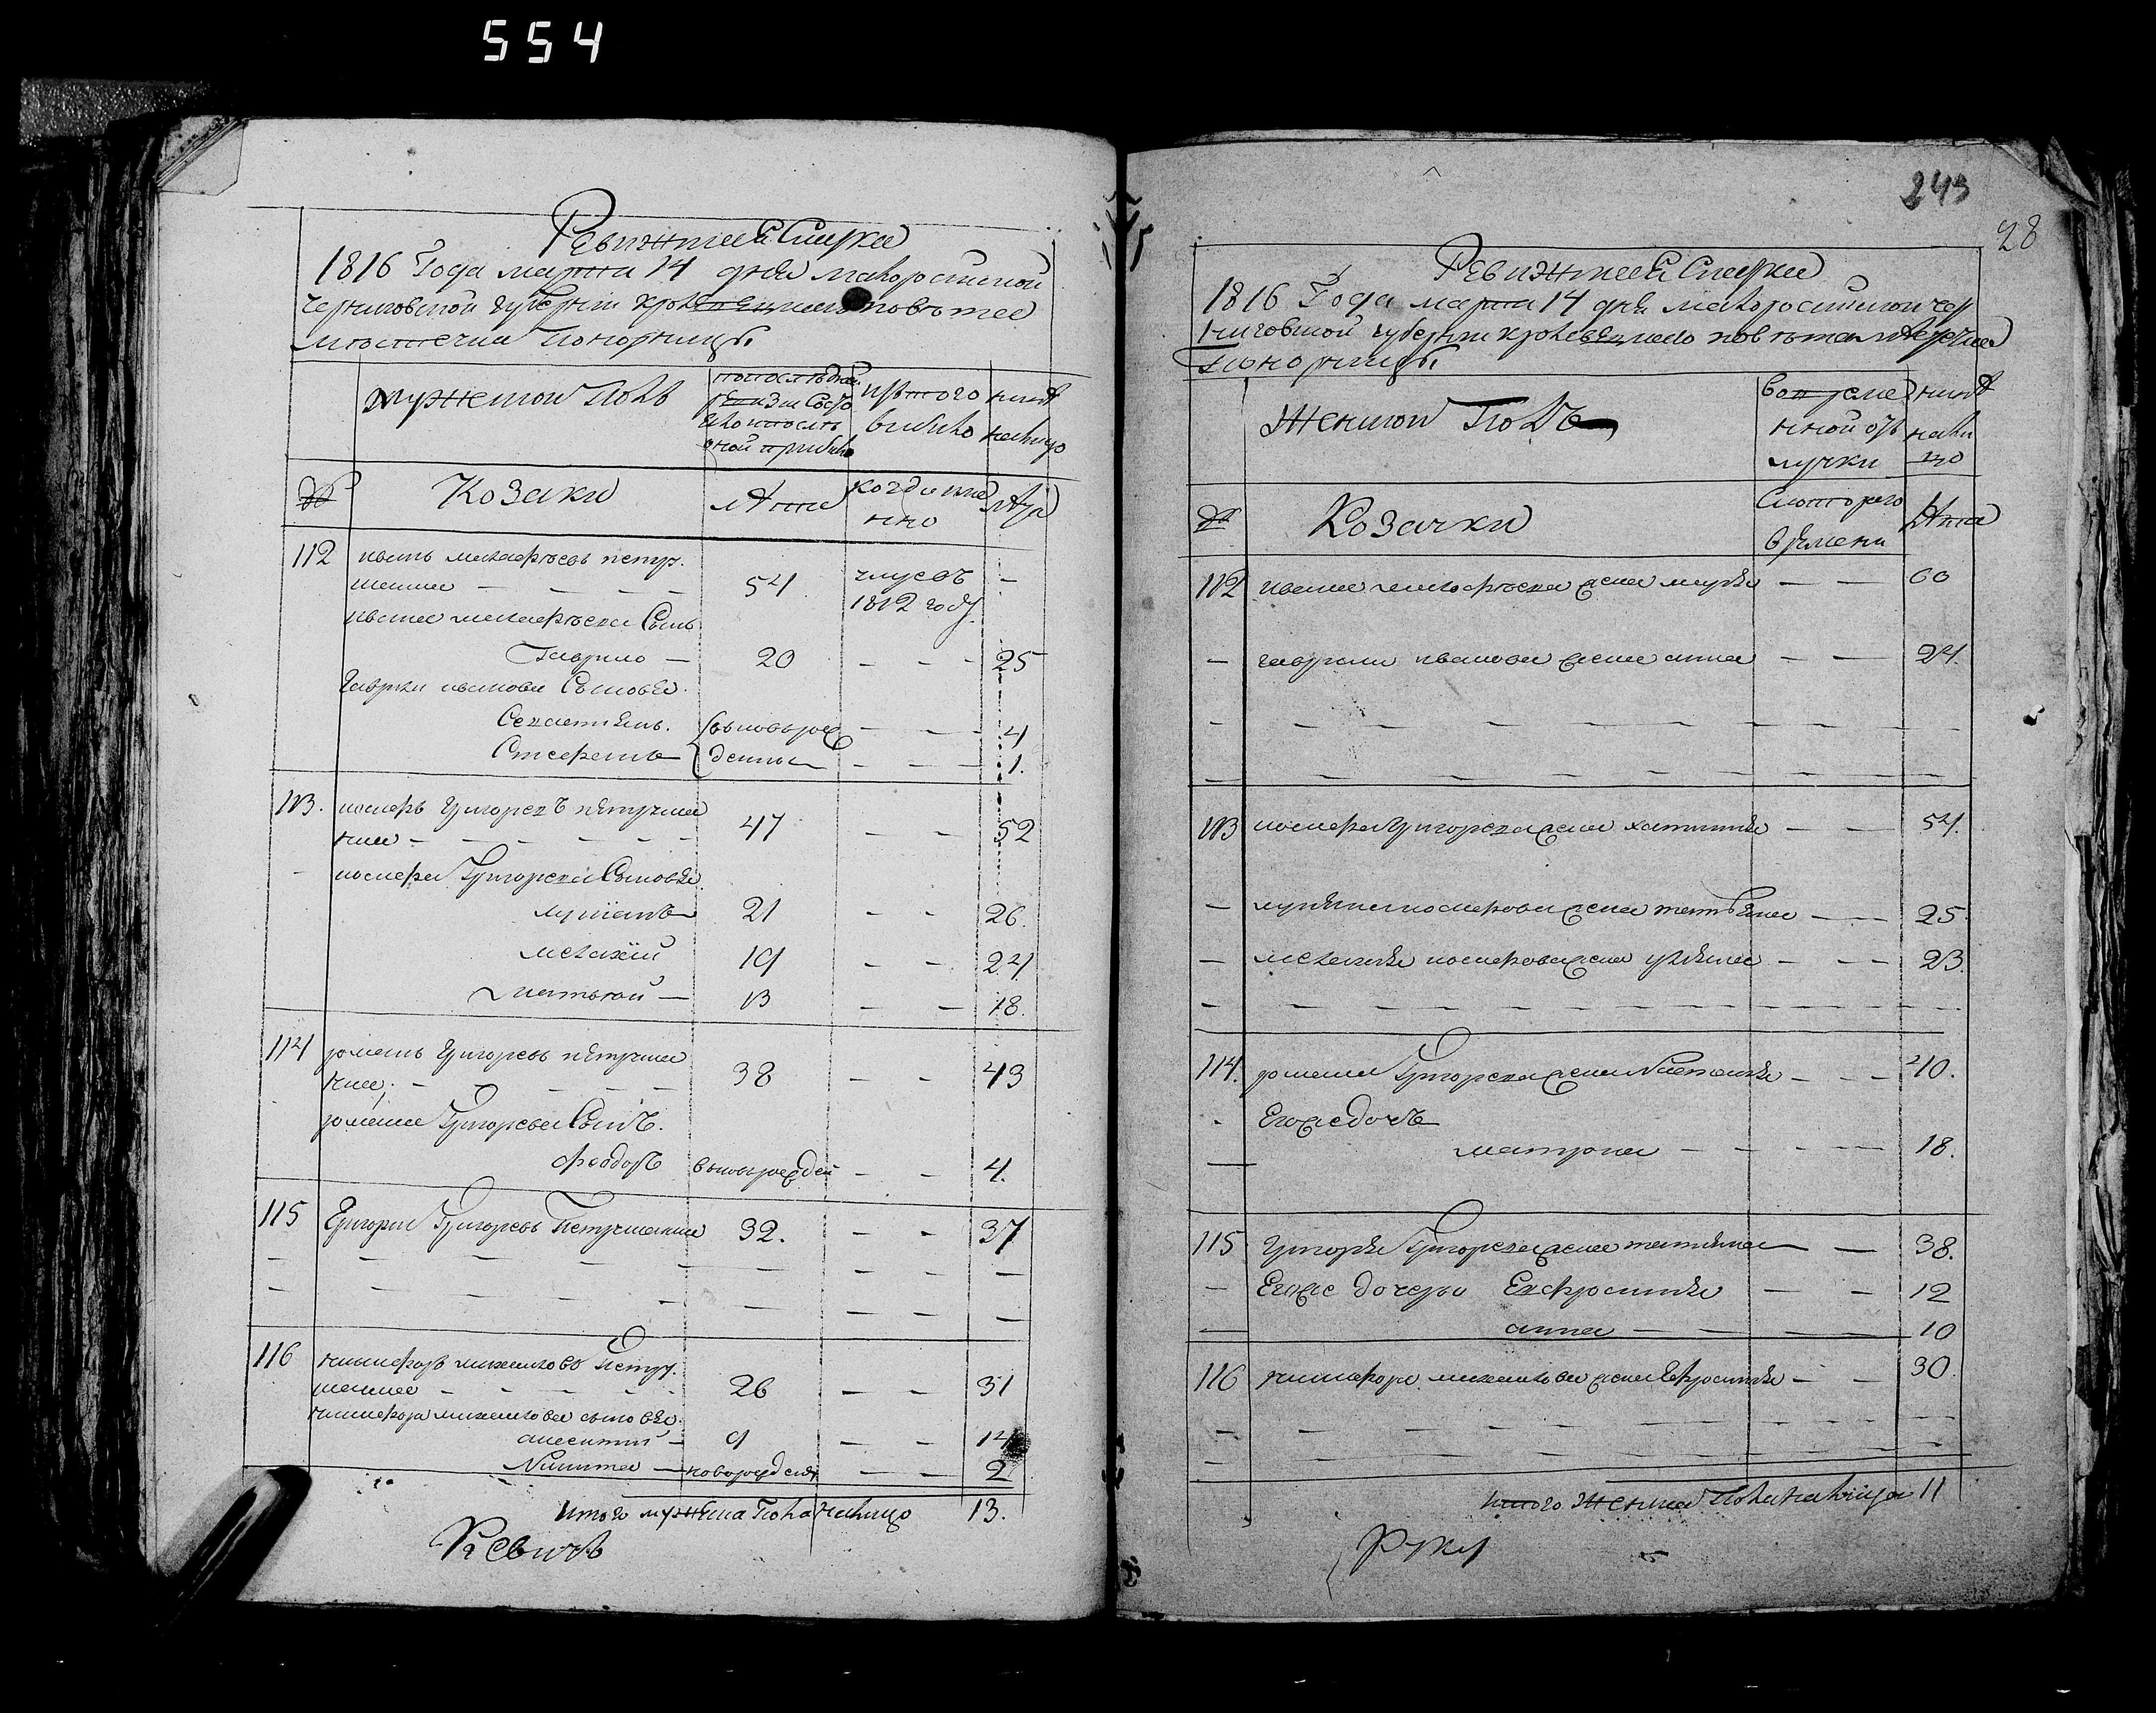 554
Ревизкая Сказка
1816 Года марта 14 дня малороссийской
черниговской губернии кролевецкаго повета
местечка Понорницы
мужеской полъ
по последней
ревизии состо
яло и после
оной прибыло
изъ того
выбыло
ныне
налицо
№
Козаки
лета
когда имен
но
лета
112
иванъ Петру
шенка
54
умеръ
1812 году
ивана сынъ
Гаврило
20
25
Гаврила иванова Сыновья
Севастиянъ
новорож
4
денны
1.
113.
григорьевъ петруше
нка
47
52
григорьева Сыновья
лукіянъ
21
26.
мелахій
19
24
матвей
13
18.
114
романъ григорьевъ петруше
нка
38
43
романа Григорьева Сынъ
феодоръ
новорожден
4.
115
Григорий Григорьевъ Петрушенка
32.
37
116
никифоръ михайловъ Петру
шенка
26
31
никифора михайлова сыновья
9
14
Никита
новорожден
2
Итого мужеска пола налицо
13.
Ревизкая Сказка
243
28
1816 Года марта 14 дня малороссийской чер
ниговской губернии кролевецкаго повета местечка
понорницы
Женской Полъ
во време
нной от
лучки
ныне
нали
цо
№
Козачки
С которого
времени
Лета
112
ивана жена марья
60
гаврила иванова жена анна
24.
113
григорьева жена
54.
лукияна жена татьяна
25.
жена ульяна
23.
114.
романа Григорьева жена Настасья
40.
Его же дочь
матрона
18.
115
григорья Григорьева жена татияна
38.
Его же дочери Евфросиния
12
анна
10
116
никифора михайлова жена Ефросиния
30.
Итого Женска Пола налицо
11